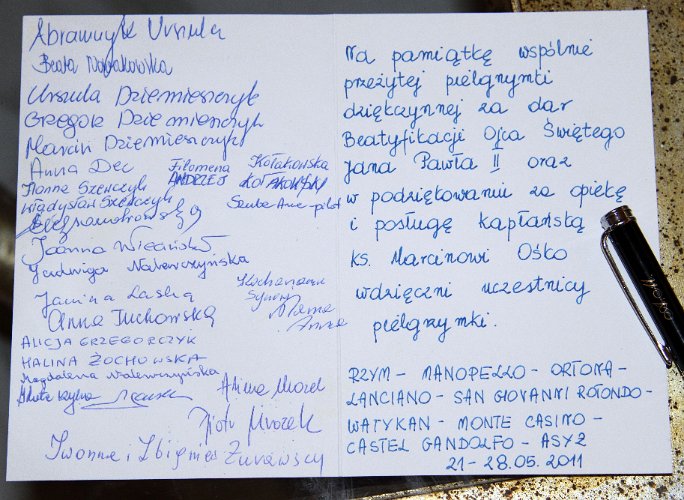 Abramczyk Urszula
Beata Nowakowska
Urszula Dziemieszczyk
Grzegorz Dziemieszczyk
Marcin Dziemieszczyk
Anna Dec
Filomena Kołakowska
ANDRZEJ KOŁAKOWSKI
Hanna Szewczyk
Władysław Szewczyk
Joanna
Jadwiga Nalewczyńska
Janina Laska
Anna Żuchowska
Kochanowscy
Anna
ALICJA GRZEGORCZYK
HALINA ŻOCHOWSKA
Magdalena Nalewczyńska
Alina Mrozek
Piotr Mrozek
Iwonna i Zbigniew Żurawscy
Na pamiątkę wspólnie
przeżytej pielgrzymki
dziękczynnej za dar
Beatyfikacji Ojca Świętego
Jana Pawła II oraz
w podziękowaniu za opiekę
i posługę kapłańską
ks. Marcinowi Ośko
wdzięczni uczestnicy
pielgrzymki.
RZYM - MANOPELLO - ORTONA -
LANCIANO - SAN GIOVANNI ROTONDO -
WATYKAN - MONTE CASINO -
CASTEL GANDOLFO - ASYŻ
21-28.05.2011